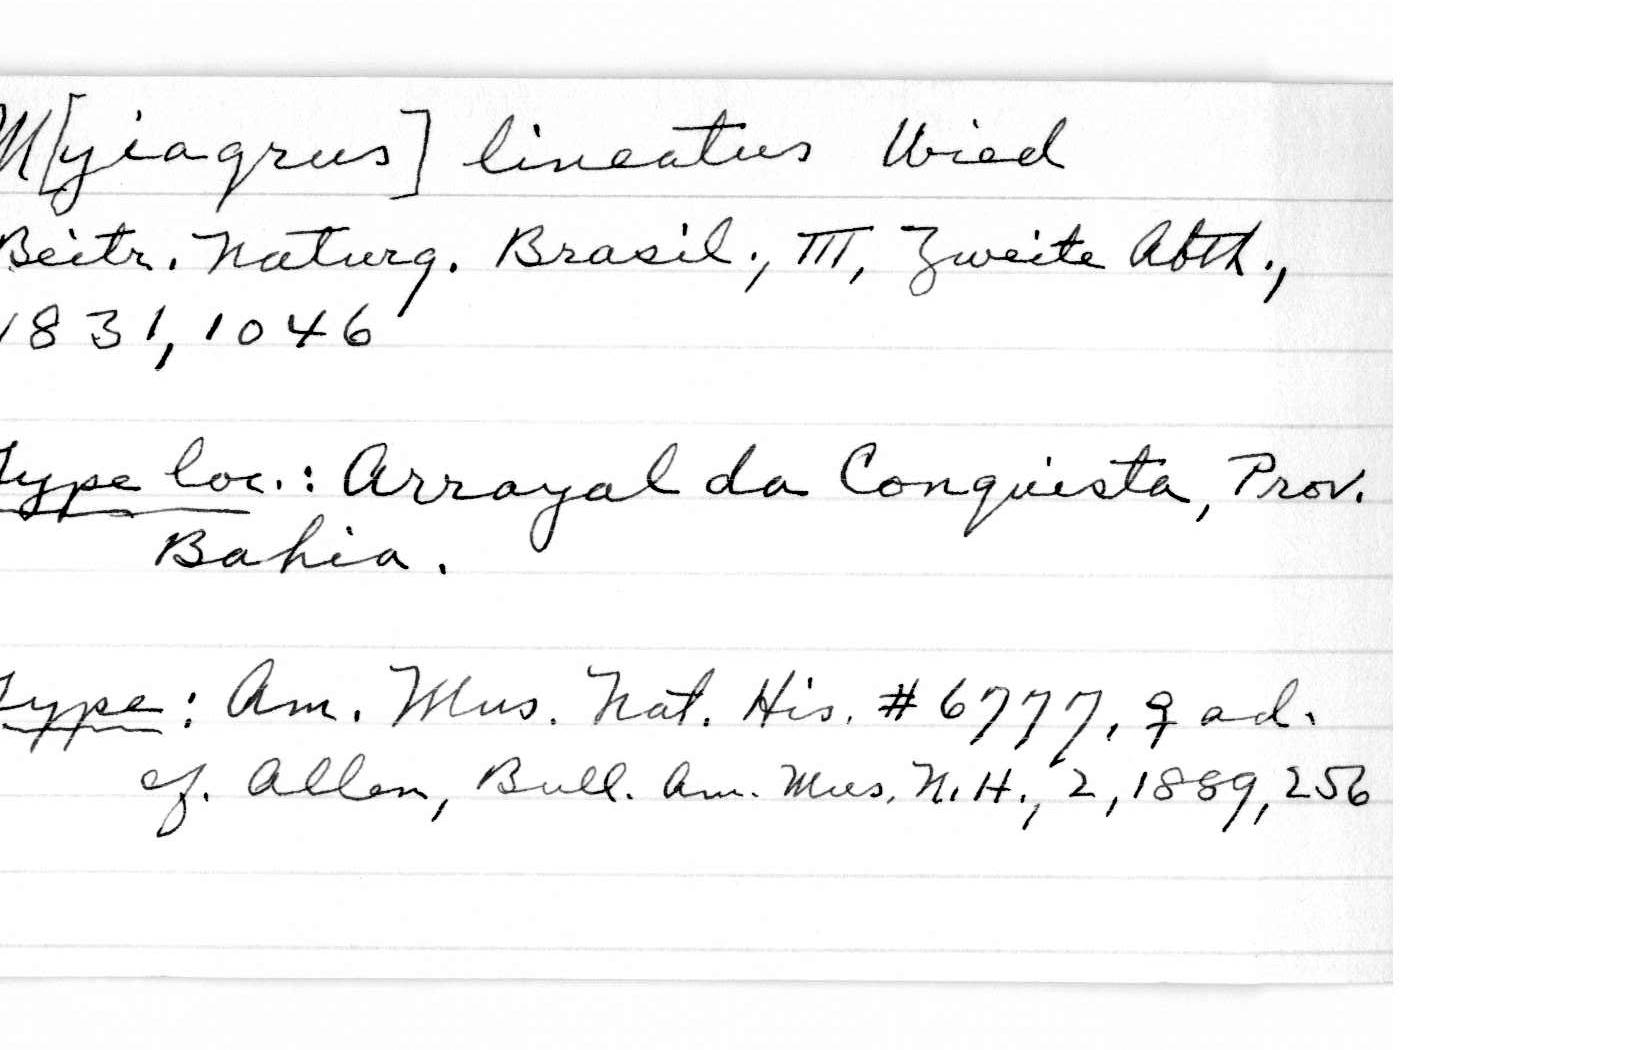 M[yiagrus] lineatus Wied
Beitr. Naturg. Brasil., III, Zweite Abth.,
1831, 1046
Type loc.: Arrayal da Conquista, Prov.
Bahia.
Type: Am. Mus. Nat. His. #6777, ♀ ad.
cf. Allen, Bull. Am. Mus. N.H., 2, 1889, 256